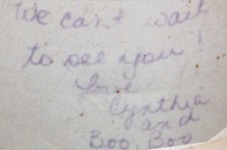 We can't wait
to see you!
Love
Cynthia
and
Boo Boo